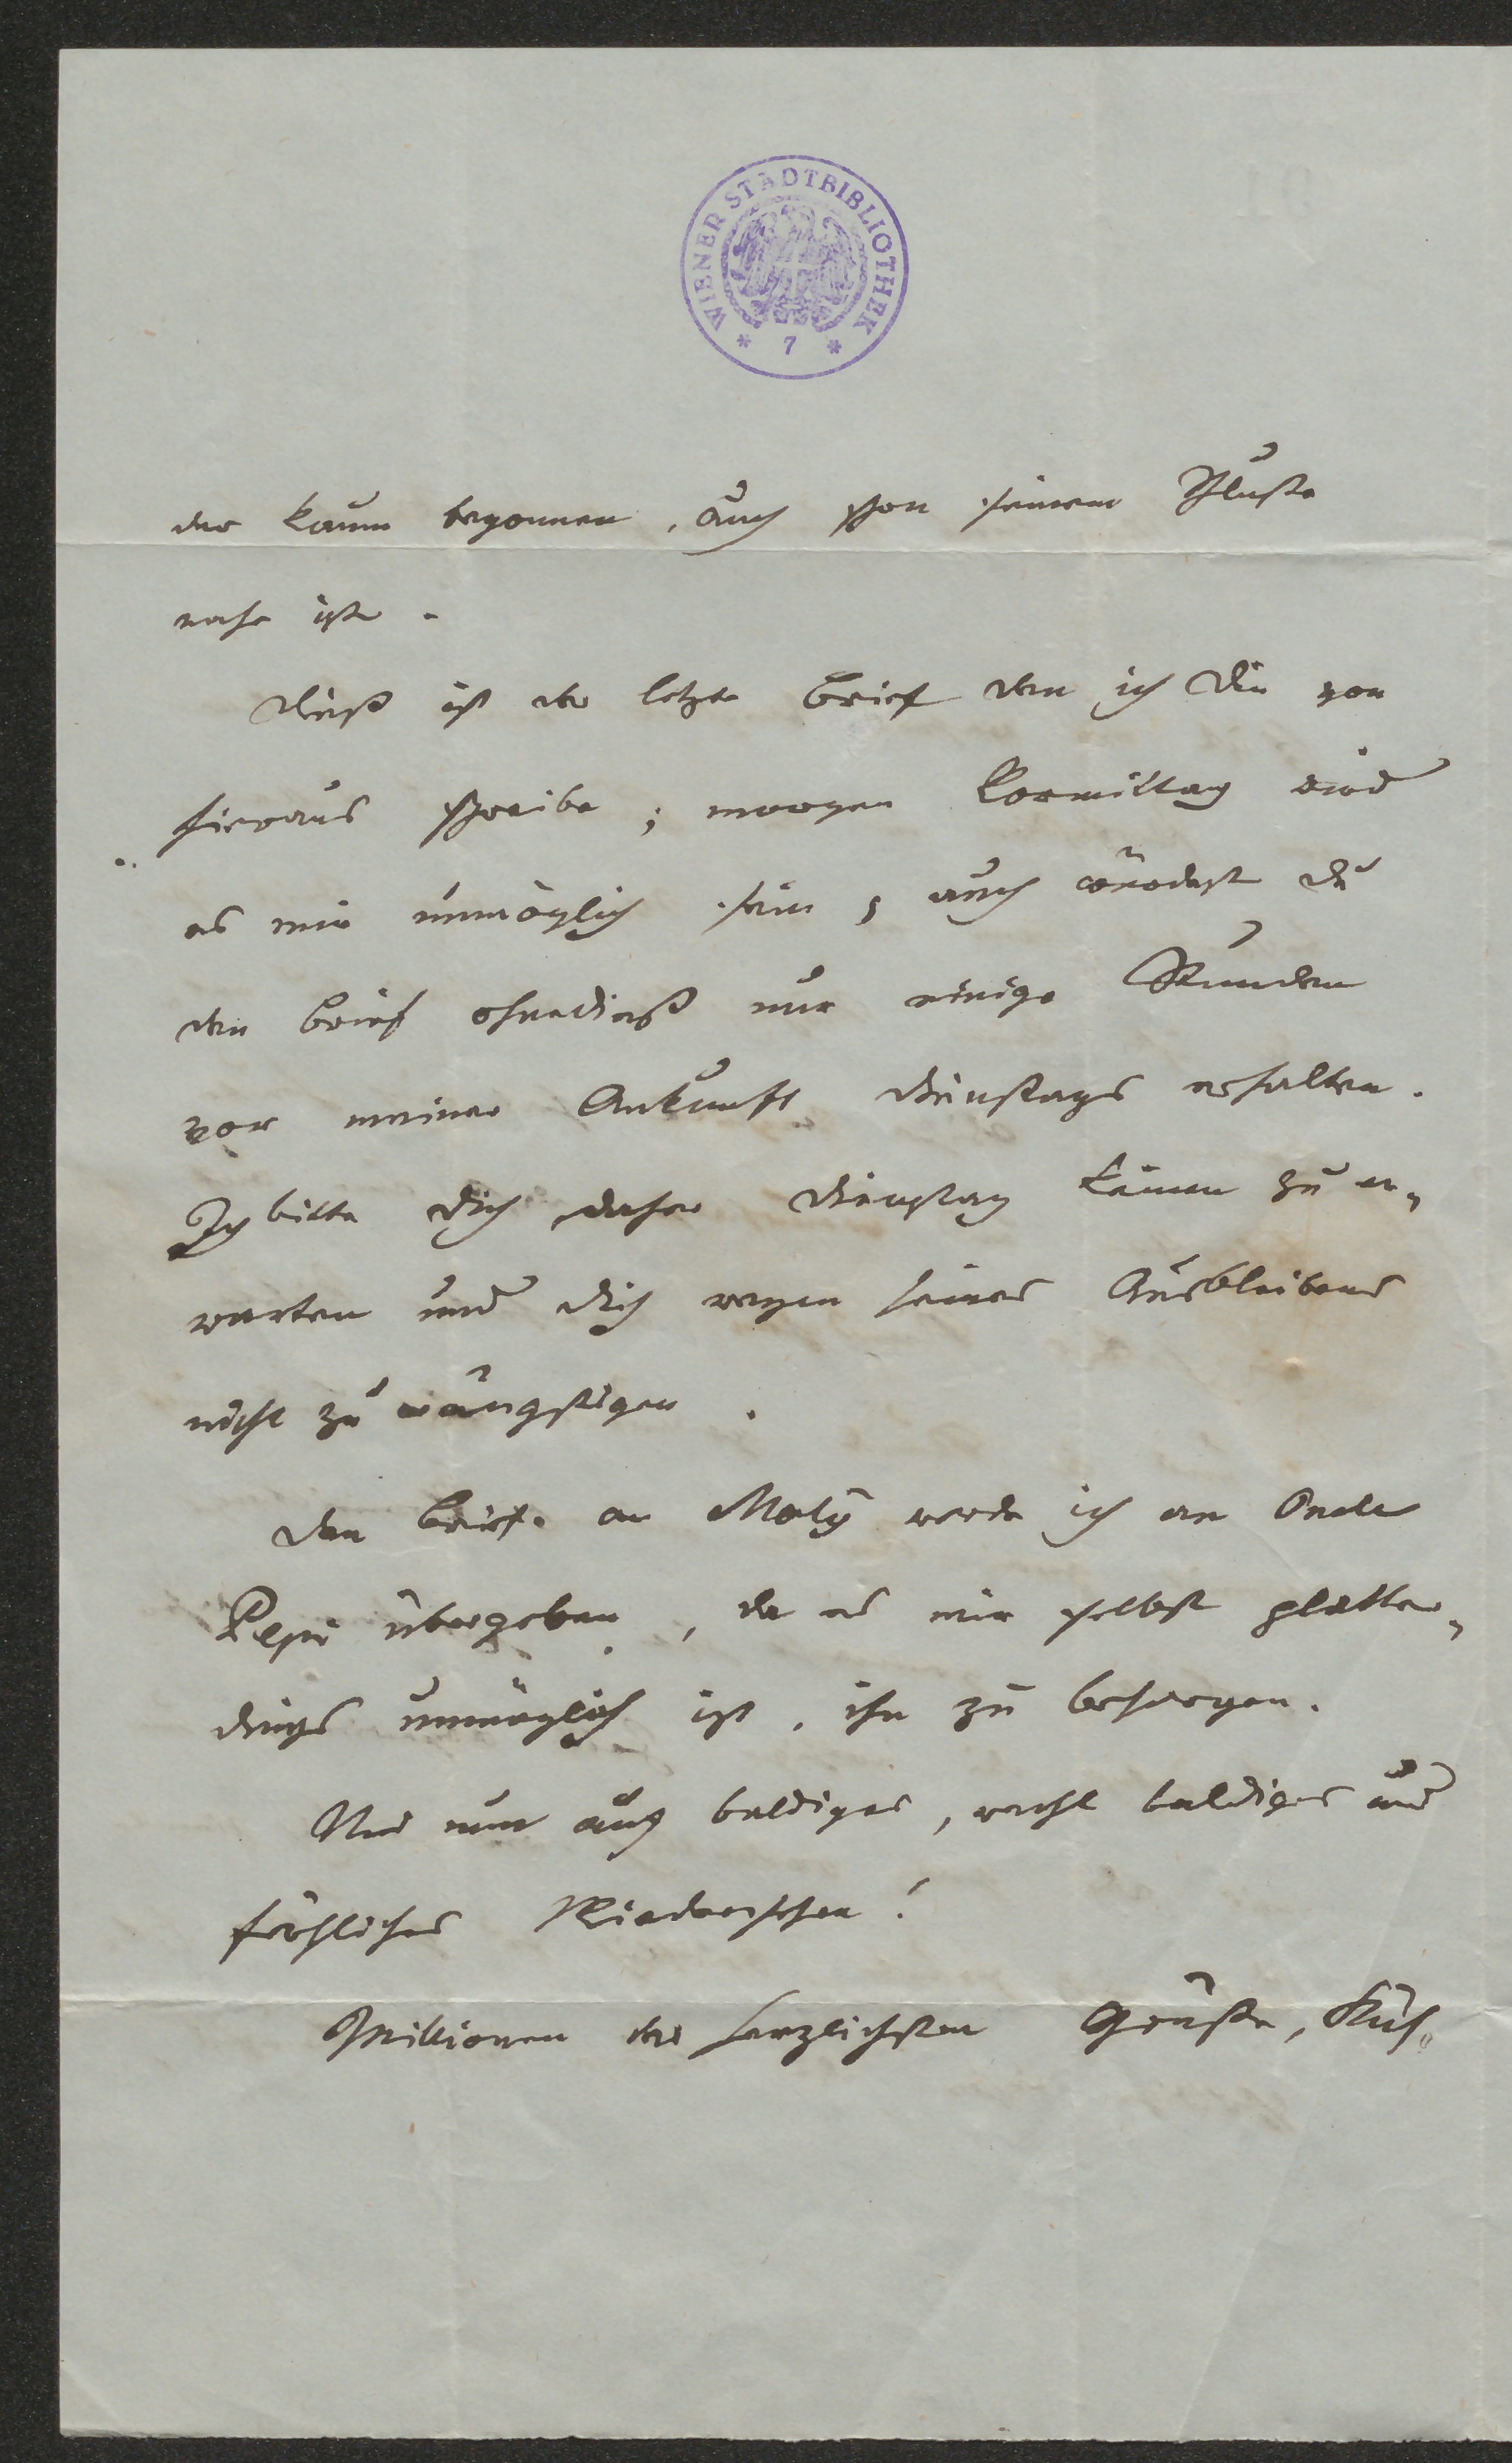 WIENER STADTBIBLIOTHEK
* 7 *
der kaum begonnen, auch schon seinem Schluße
nahe ist.
Dieß ist der letzte Brief den ich Dir von
hieraus schreibe; morgen Vormittag wird
es mir unmöglich sein, auch würdest Du
den Brief ohnedieß nur einige Stunden
vor meiner Ankunft Dienstags erhalten.
Ich bitte Dich daher Dienstag keinen zu er„
warten und Dich wegen seines Ausbleibens
nicht zu ängstigen.
Den Brief an Maly werde ich an Oncle
Pepi übergeben, da es mir selbst platter„
dings unmöglich ist, ihn zu besorgen.
Und nun auf baldiges, recht baldiges und
fröhliches Wiedersehen!
Millionen der herzlichsten Grüße, Küße